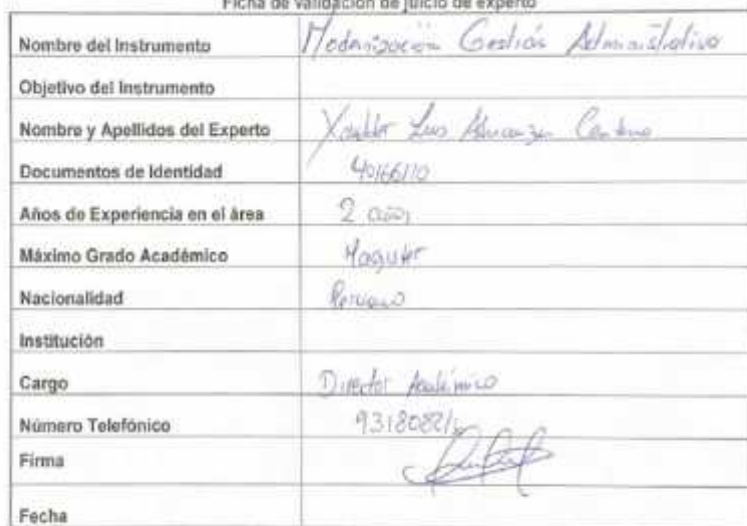 Ficha de validación de juicio de experto
Nombre del Instrumento Modernización Gestión Administrativa
Objetivo del Instrumento
Nombre y Apellidos del Experto Luis
Documentos de Identidad 40166110
Años de Experiencia en el área 2 años
Máximo Grado Académico Magister
Nacionalidad Peruano
Institución
Cargo Director Académico
Número Telefónico
Firma
Fecha